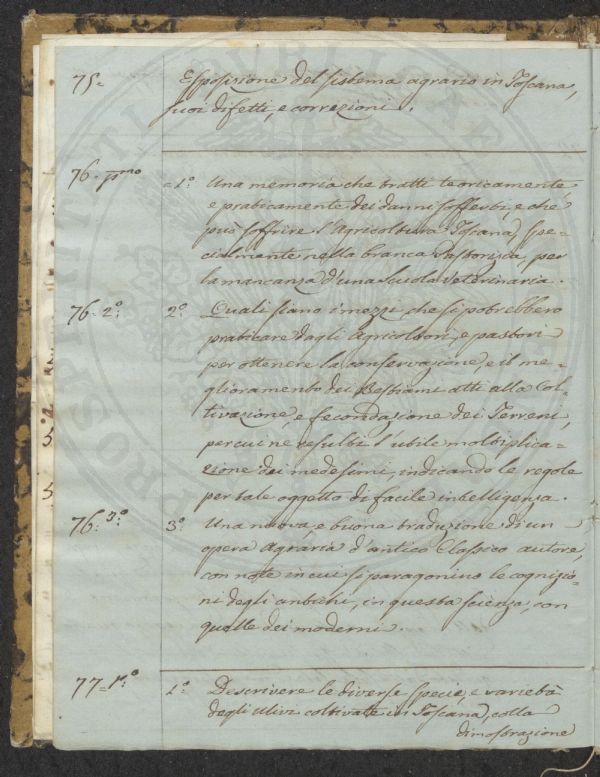 75= Esposizione del sistema agrario in Toscana,
suoi difetti, e correzioni.
76. pmo =1º Una memoria che tratti teoricamente
e praticamente dei danni sofferti, e che
può soffrire l'Agricoltura Toscana, spe-
cialmente nella branca Pastorizia per
la mancanza d'una scuola Veterinaria.
76. 2º: 2º Quali siano i mezzi, che si potrebbero
praticare dagli Agricoltori, e pastori
per ottenere la conservazione, e il me-
glioramento dei Bestiami atti alla Col-
tivazione, e fecondazione dei Terreni,
per cui ne resulti l'utile moltiplica-
zione dei medesimi, indicando le regole
per tale oggetto di facile intelligenza.
76: 3º: 3º Una nuova, e buona traduzione di un
opera Agraria d'antico Classico autore,
con note in cui si paragonino le cognizio-
ni degli antichi, in questa scienza, con
quelle dei moderni.
77=1º: 1º Descrivere le diverse specie, e varietà
degli Ulivi coltivate in Toscana, colla
dimostrazione